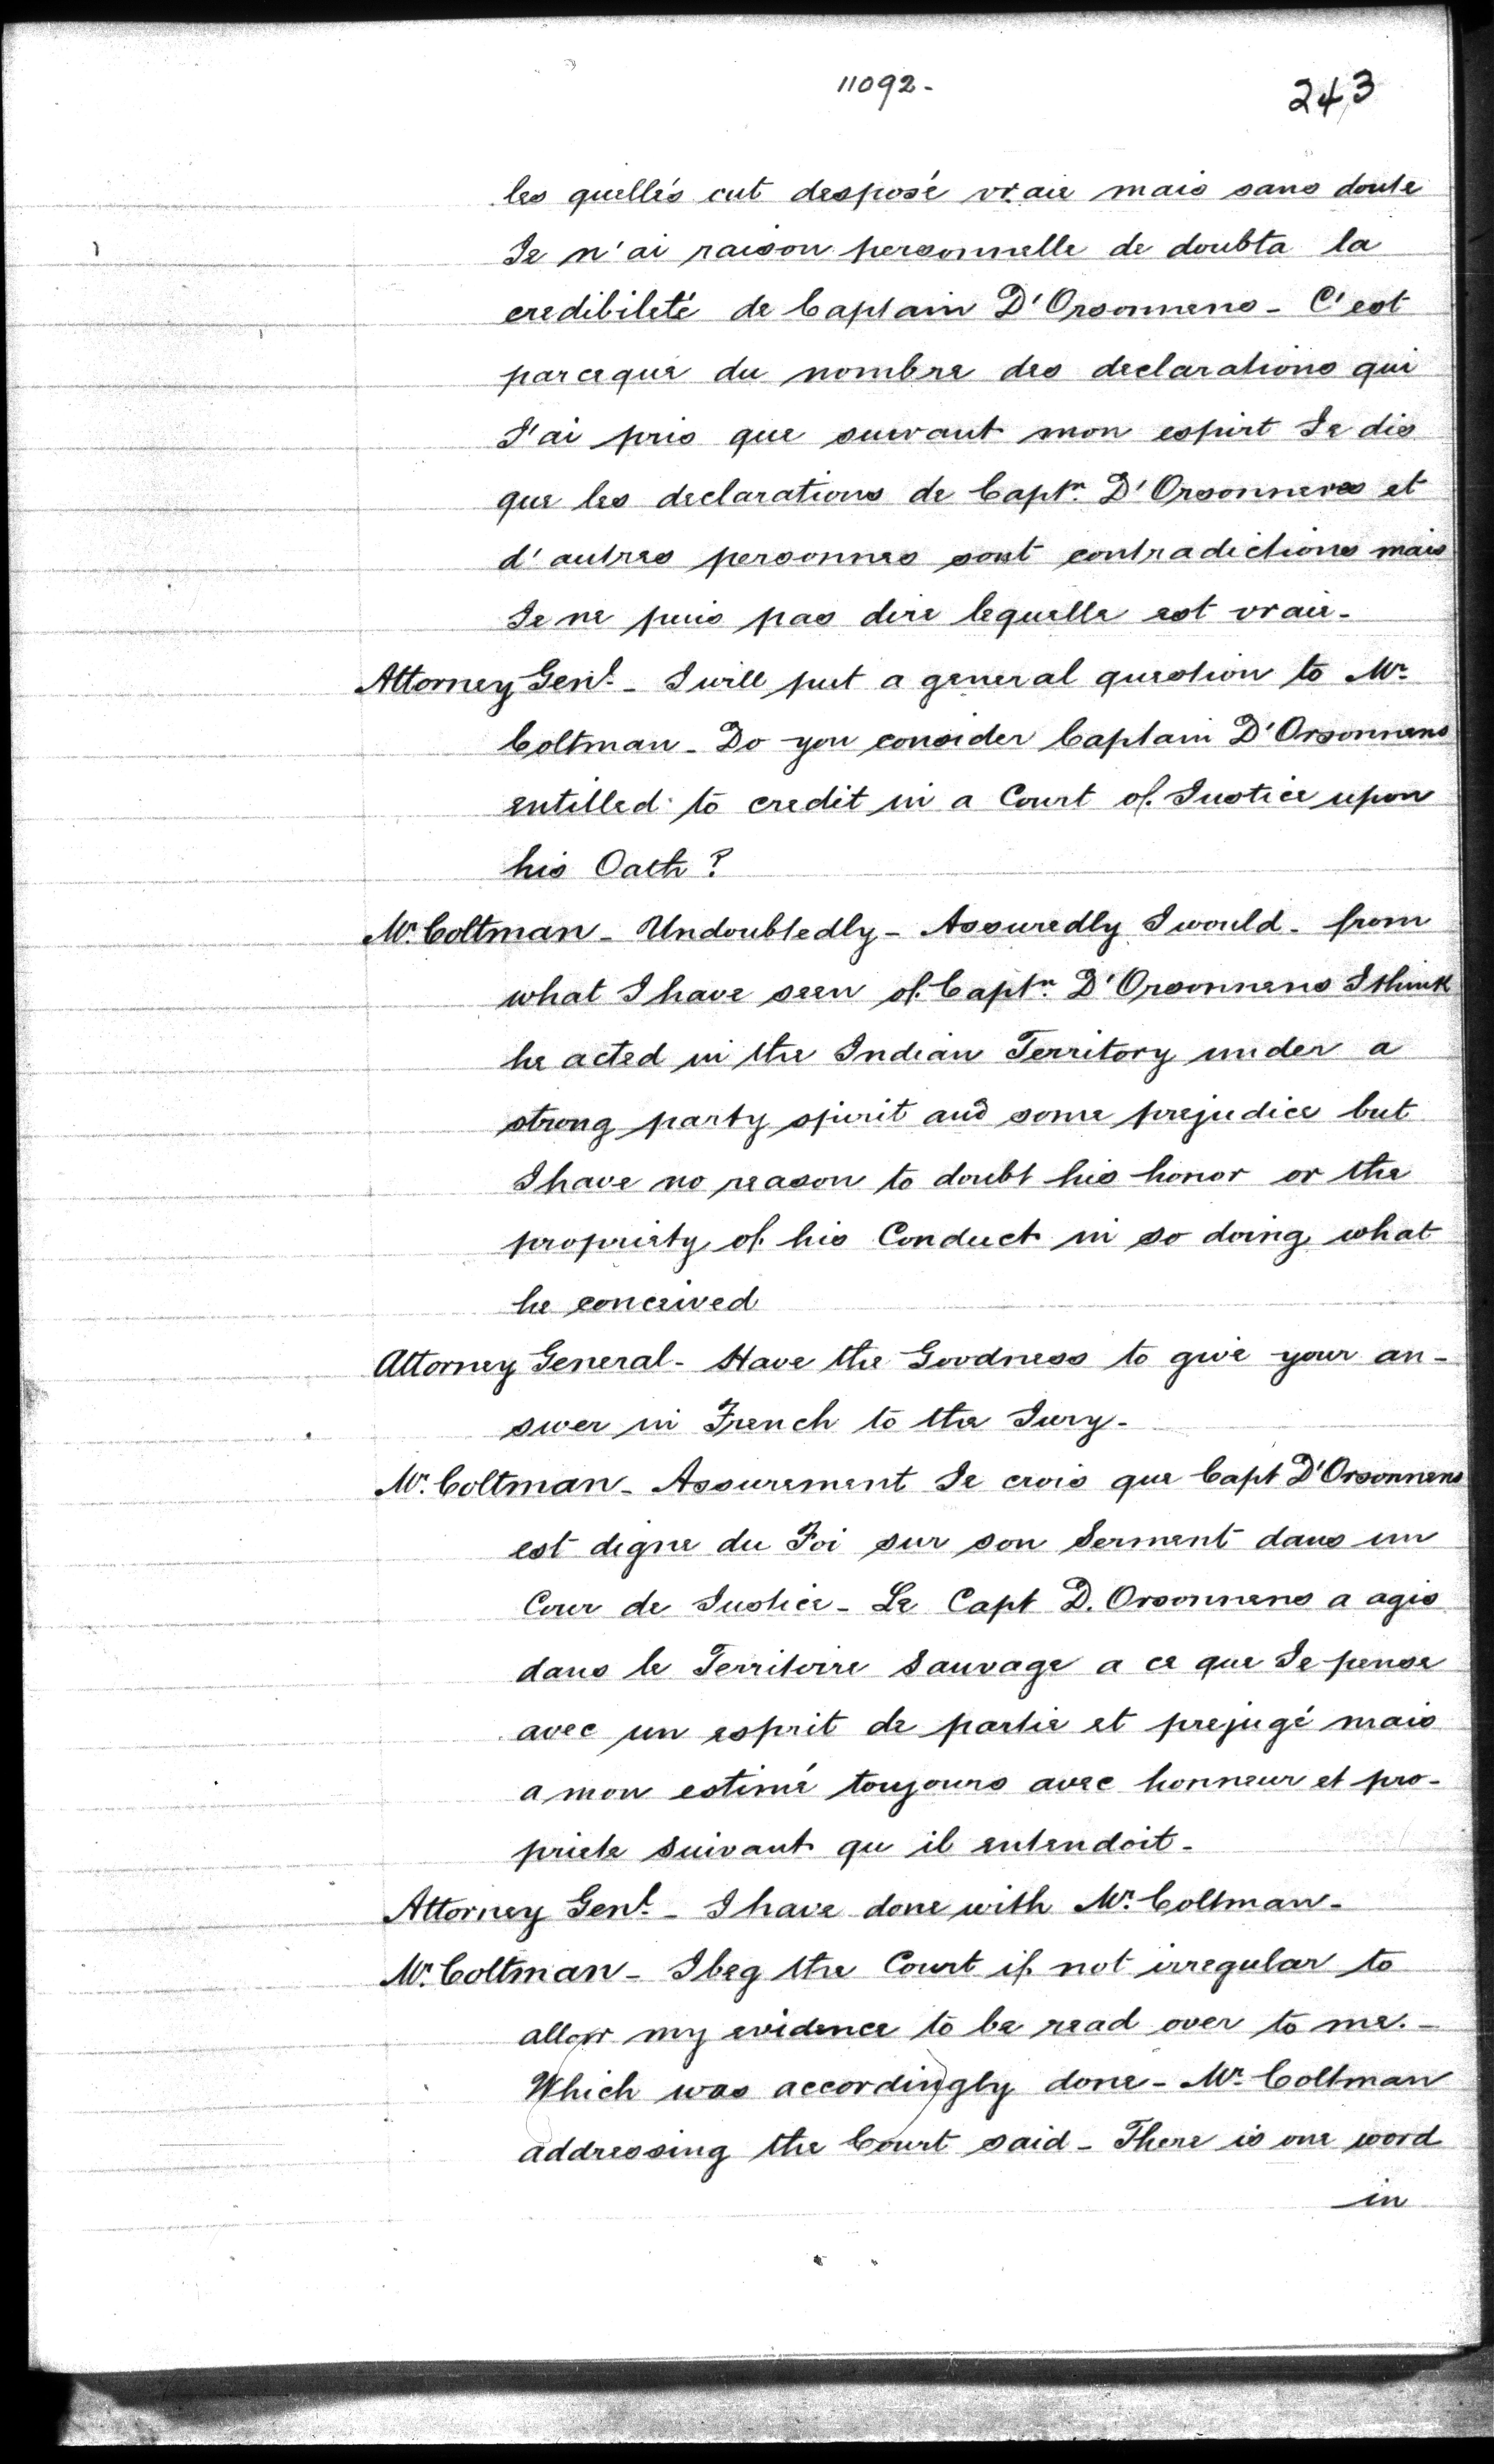 11092-
243
les quellés cut desposé vraie mais sans doute
Je n'ai raison personnelle de doubta la
credibileté de Captain D'Orsonnens - C'est
parceque du nombre des declarations qui
J'ai pris que suivant mon espirt Je dis
que les declarations de Captn. D'Orsonnens et
d'autres personnes sont contradictions mais
Je ne puis pas dire lequelle est vraie -
Attorney Genl. - I will put a general question to Mr.
Coltman - Do you consider Captain D'Orsonnens
entitled to credit in a Court of Justice upon
his Oath ?
Mr. Coltman - Undoubtedly - Assuredly I would - from
what I have seen of Captn. D'Orsonnens I think
he acted in the Indian Territory under a
strong party spirit and some prejudice but
I have no reason to doubt his honor or the
propriety of his Conduct in so doing what
he conceived
Attorney General - Have the Goodness to give your an-
swer in French to the Jury -
Mr. Coltman - Assurement Je crois que Capt D'Orsonnens
est digne du Foi sur son Serment dans un
Cour de Justice - Le Capt D. Orsonnens a agis
dans le Territoire Sauvage a ce que Je pense
avec un esprit de partie et prejugé mais
a mon estimé toujours avec honneur et pro-
priete suivant qu il entendoit -
Attorney Genl. - I have done with Mr. Coltman -
Mr. Coltman - I beg the Court if not irregular to
allow my evidence to be read over to me. -
Which was accordingly done - Mr. Coltman
addressing the Court said - There is one word
in